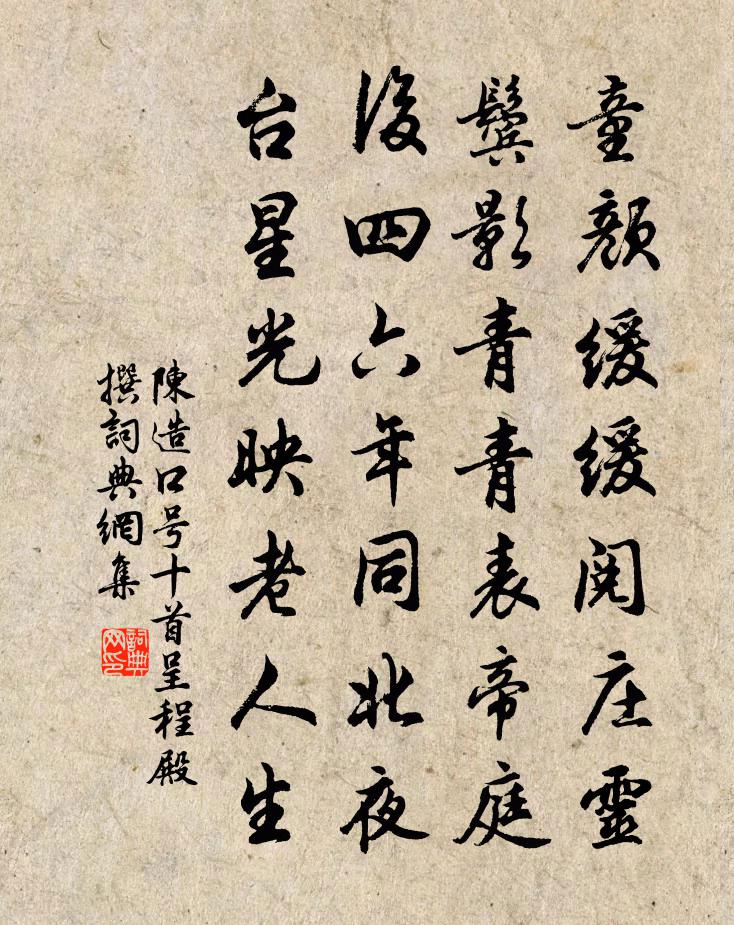 童顏緩緩閱庄靈
鬢影青青表帝庭
後四六年同北夜
台星光映老人生
陳造口号十首呈程殿
撰詞典網集
詞典网印